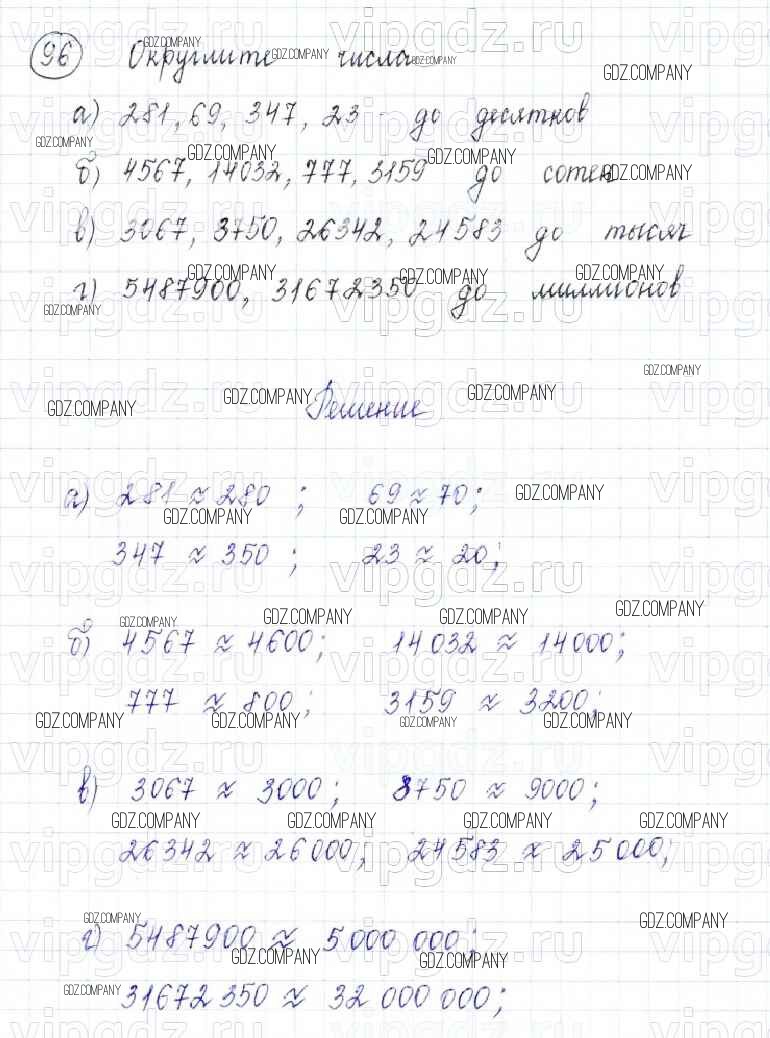 96 Округлите числа
а) 281, 69, 347, 23 - до десятков
б) 4567, 14032, 777, 3159 до сотен
в) 3067, 3750, 26342, 24583 до тысяч
г) 5487900, 31672350 до миллионов
Решение
а) 281 ≈ 280 ; 69 ≈ 70;
347 ≈ 350 ; 23 ≈ 20;
б) 4567 ≈ 4600; 14032 ≈ 14000;
777 ≈ 800; 3159 ≈ 3200;
в) 3067 ≈ 3000; 8750 ≈ 9000;
26342 ≈ 26000; 24583 ≈ 25000;
г) 5487900 ≈ 5000 000;
31672 350 ≈ 32 000 000;
GDZ.COMPANY
vipgdz.ru